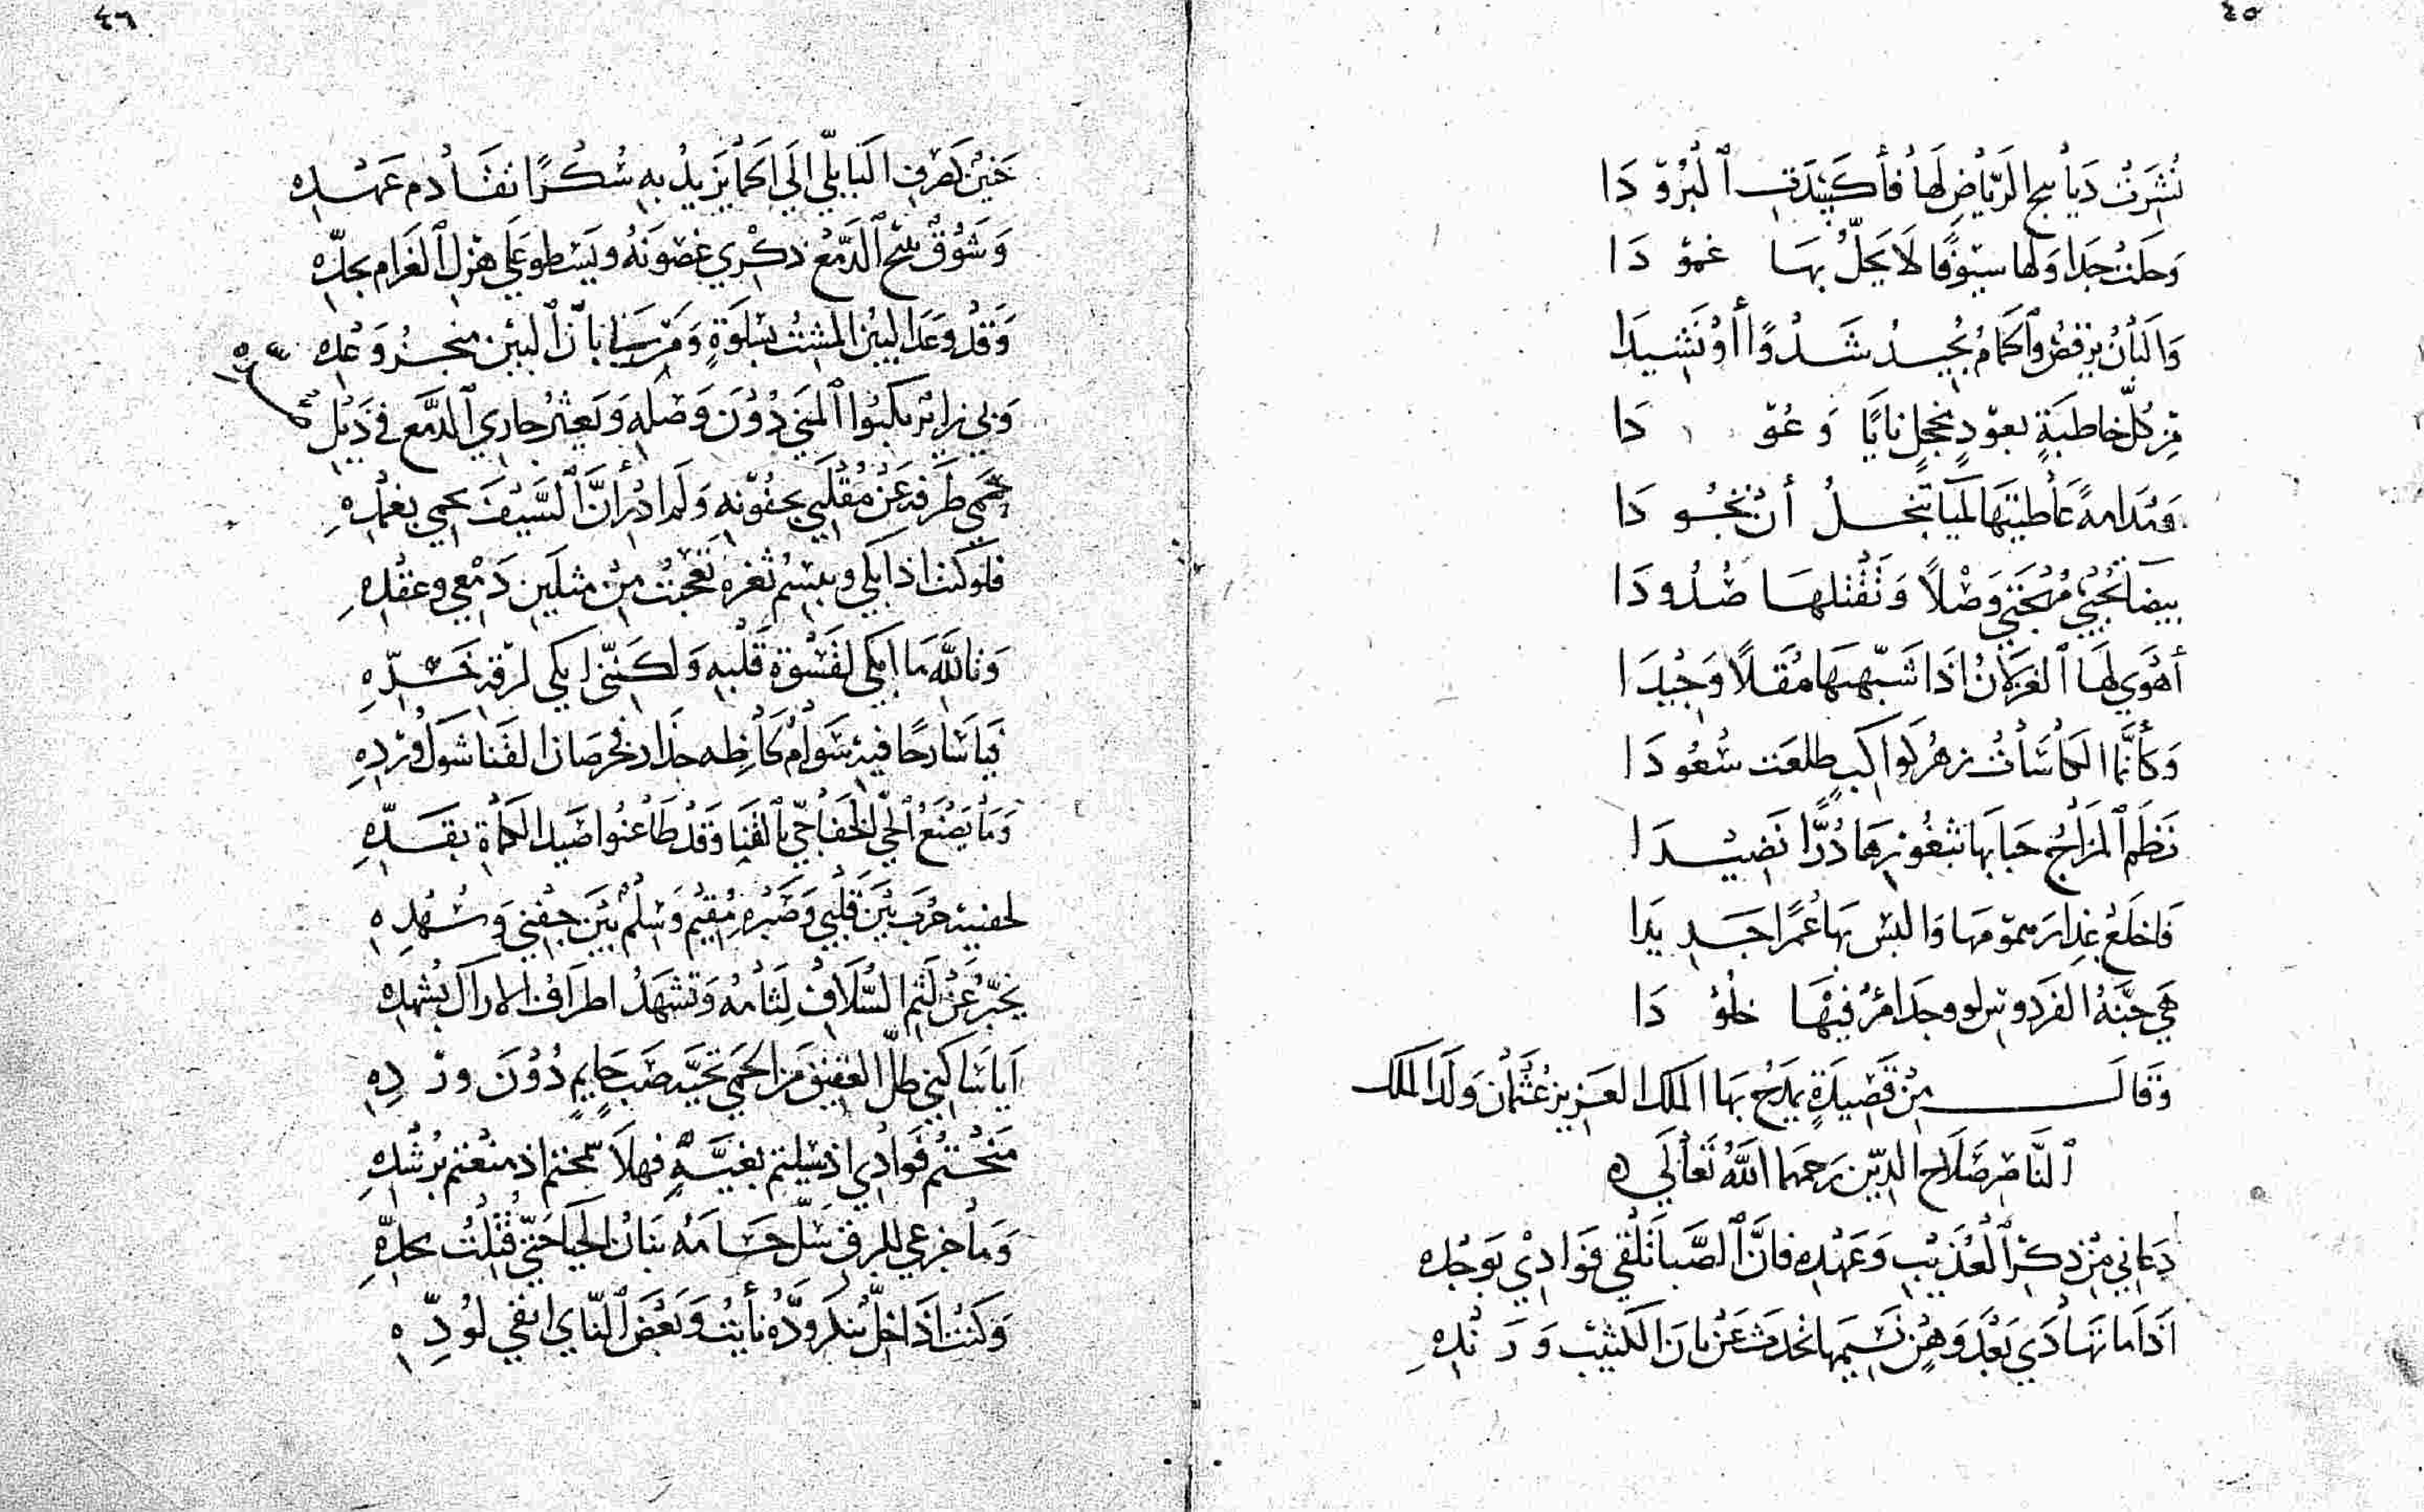 ٤٥
نُثِرَتْ دَيَابيج الرِّيَاضِ لَهَا فَأَكسَدَتِ ٱلْبُرُوْ دَا
وَجَلَت جدَاوَلها سيُوْفًا لَا يَحلُّ بهَا غمُوْ دَا
وَالبَانُ يرْقصُ وٱلحمَامُ يُجيدُ شَدْوًا أَوْ نَشِيدَا
مِنْ كلّ خاطبَةٍ بعوْدٍ يخجل نايًا وَ عُوْ دَا
وَمُدَامةً عَاطيتهَا لميَا تبخلُ أنْ تجُو دَا
بيضا تُحْيي مُهجَتي وَصْلًا وَتُقْتلهَا صُدُودَا
أهْوي لهَا ٱلغزلانُ اذَا شَبّهتهَا مُقَلًا وَجِيْدَا
وَكأنَّمَا الكاسَاتُ زهْرُ كواكبٍ طلعَت سُعُودَا
نَظَم ٱلمزَاجُ حبَابهَا بثغُوْرِهَا دُرًّا نَضِيْدَا
فَاخلَعْ عِذَارَ همُوْمهَا وَالبسْ بهَا عُمرًا جَدِيدَا
هَي جنَّةُ الفرَدوسِ لو وجدَ امرُؤ فيْهَا خلُوْ دَا
وَقَالَ مِنْ قَصِيدَةٍ يمدَحُ بهَا الملكَ العَزيز عُثْمَان وَلَدَ الملك
ٱلنَّاصِر صَلَاح الدِّين رَحمهما اللَّهُ تَعَالَي ه
دعَاني مِنْ ذِكْرِ ٱلعُذَيْبِ وَعَهْدِهِ فانَّ ٱلصَّبَا تَلْقي فؤادِيْ بوَجْده
اذَا مَا تهَادَي بَعْدَ وَهْنٍ نسيمهَا تحدث عَنْ بَانَ الكثيْبِ وَرَنْدِهِ
٤٦
حَنِيْنٌ كصَرفِ البَابليّ اليَ الحمَا يزَيدُ بهِ سُكْرًا تقَادُم عَهْدِهِ
وَشَوْقٌ يبيحُ ٱلدَّمْعُ ذكْري غصُونَهُ ويَسْطو عَلي هزْلِ ٱلغَرَام بجدِّهِ
وَقَدْ وَعَدَ البيْن المشِتُّ بسَلوَةٍ وَمَن بانَّ ٱلبيْن منجزُ وَعْده
وَبي زائرٌ يكبُوا ٱلمنَي دُوْنَ وَصْلِهِ وَيَعثرُ جاري ٱلدَّمْع في ذَيْل
حَمَي طَرفه عَنْ مُقْلَتي بجفُوْنهِ وَلم ادْر أنَّ ٱلسَّيْفَ يحمي بغمْدِهِ
فلوكنت اذ ابكي ويبسِمُ ثغرهُ تَعَجبْتَ مِنْ مثلَين دَمْعي وعقْدِهِ
وَتاللَّهِ مَا ابكي لقَسْوَة قَلْبهِ وَلكنّني ابكي لرقّةِ خَدِّهِ
فيَا سَارحًا فيْه سَوَامُ لحَاظه حَذَارِ فخرصَان القَنا شَوكُ وَرْدِهِ
وَمَا يَصْنعُ ٱلحيّ الخَفَاجيّ بالقنَا وَقدْ طَاعَنُوا صَيدَ الكماةِ بقَدِّهِ
لجفنيْه حَرْبٌ بَيْنَ قَلبي وَصَبْرهِ مُقِيْم وَسِلْمٌ بَيْنَ جفْني وَسُهْدِهِ
يخبّرُ عَنْ لَثم السُّلَافِ لِثَامُهُ وَتشْهَدُ اطرَافُ الاراك بشهدهِ
أيَا سَاكني ظلّ العقيق مَن الحمَي تحيَّة صَبّ حَايمٍ دُوْنَ ورْ دِهِ
مَنَحْتمْ فؤادِي اذ سلبتم بغيّهِ فهلَا سمحتم اذ منعْتم برُشْدهِ
وَمَا جزعي للبرق سَلَّ حسَامهُ بَنَانُ الحيَا حَتّي قُتِلْتُ بحدّهِ
وَكنْتُ اذَا خلٌّ تنكّر وَدُّهُ نأيْتُ وَبَعْضَ ٱلنّاي ابقي لوُدِّهِ